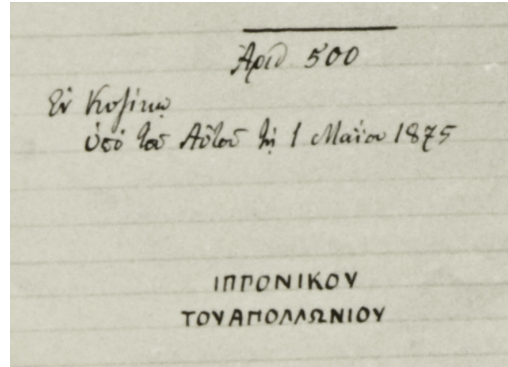 Ἀριθ 500
Ἐν Κυζίκῳ
ὑπὸ τοῦ Αὐτοῦ τῇ 1 Μαΐου 1875
ΙΠΠΟΝΙΚΟΥ
ΤΟΥΑΠΟΛΛΩΝΙΟΥ